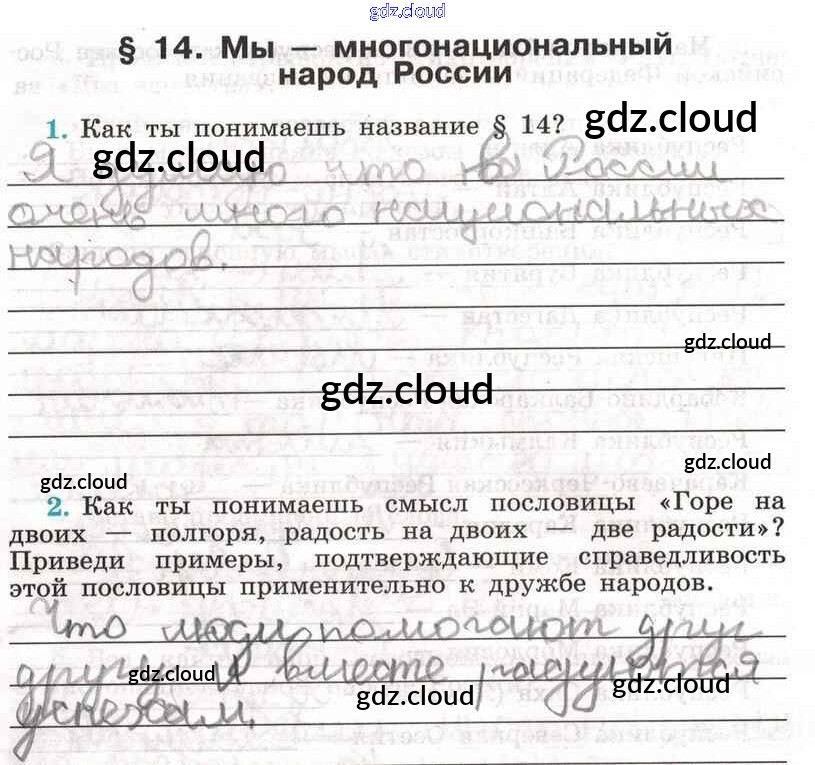 gdz.cloud
§ 14. Мы — многонациональный
народ России
1. Как ты понимаешь название § 14? gdz.cloud
Я думаю что на России
gdz.cloud
очень много национальных
народов.
gdz.cloud
gdz.cloud
gdz.cloud
gdz.cloud
2. Как ты понимаешь смысл пословицы «Горе на
двоих — полгоря, радость на двоих — две радости»?
Приведи примеры, подтверждающие справедливость
этой пословицы применительно к дружбе народов.
Что люди помогают друг
другу и вместе радуются
gdz.cloud
gdz.cloud
gdz.cloud
успехам.